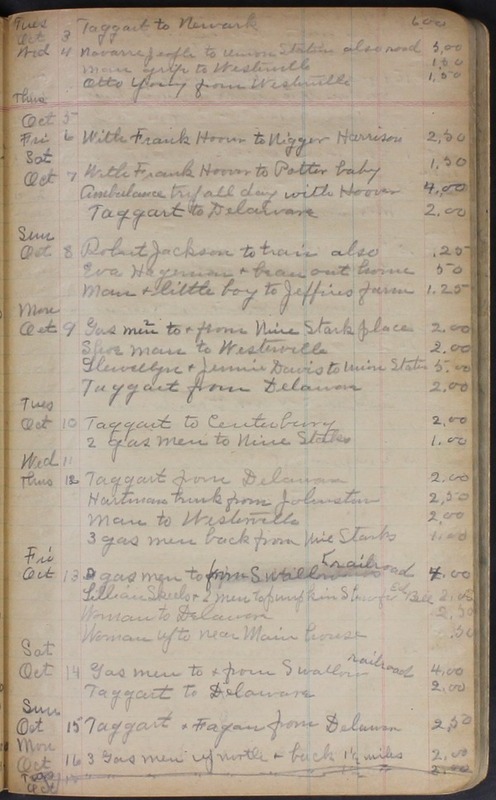 Tues
Oct 3 Taggart to Newark 6.00
Wed 4 Navarre people to Union Station also road 5.00
Man grip to Westerville 1.50
Otto from Westerville 1.50
Thus
Oct 5
Fri 6 With Frank Hoover to Nigger Harrison 2.50
Sat
Oct 7 With Frank Hoover to Potter baby 1.50
Ambulance try all day with Hoover 4.00
Taggart to Delaware 2.00
Sun
Oct 8 Robert Jackson to train also .25
Eva Hagerman + bean out home 50
Man + little boy to Jeffries farm 1.25
Mon
Oct 9 Gas men to + from Nine Stark place 2.00
Shoe man to Westerville 2.00
Llewellyn + Jennie Davis to mine States 5.00
Taggart from Delawar 2.00
Tues
Oct 10 Taggart to Centerbury 2.00
2 gas men to Nine Starks 1.00
Wed 11
Thus 12 Taggart from Delawar 2.00
Hartman trunk from Johnston 2.50
Man to Westerville 2.00
3 gas men back from Nine Starks 1.00
Fri
Oct 13 gas men to from Swallow railroad 4.00
Lillian + 2 men to pumpkin St 2.00
Woman to Delawar 2.50
Woman up to near Main house 50
Sat
Oct 14 Gas men to + from Swallow railroad 4.00
Taggart to Delaware 2.00
Sun
Oct 15 Taggart + Fagan from Delawar 2.50
Mon
Oct 16 3 Gas men up north + back 1½ miles 2.00
Tues 2.00
Oct